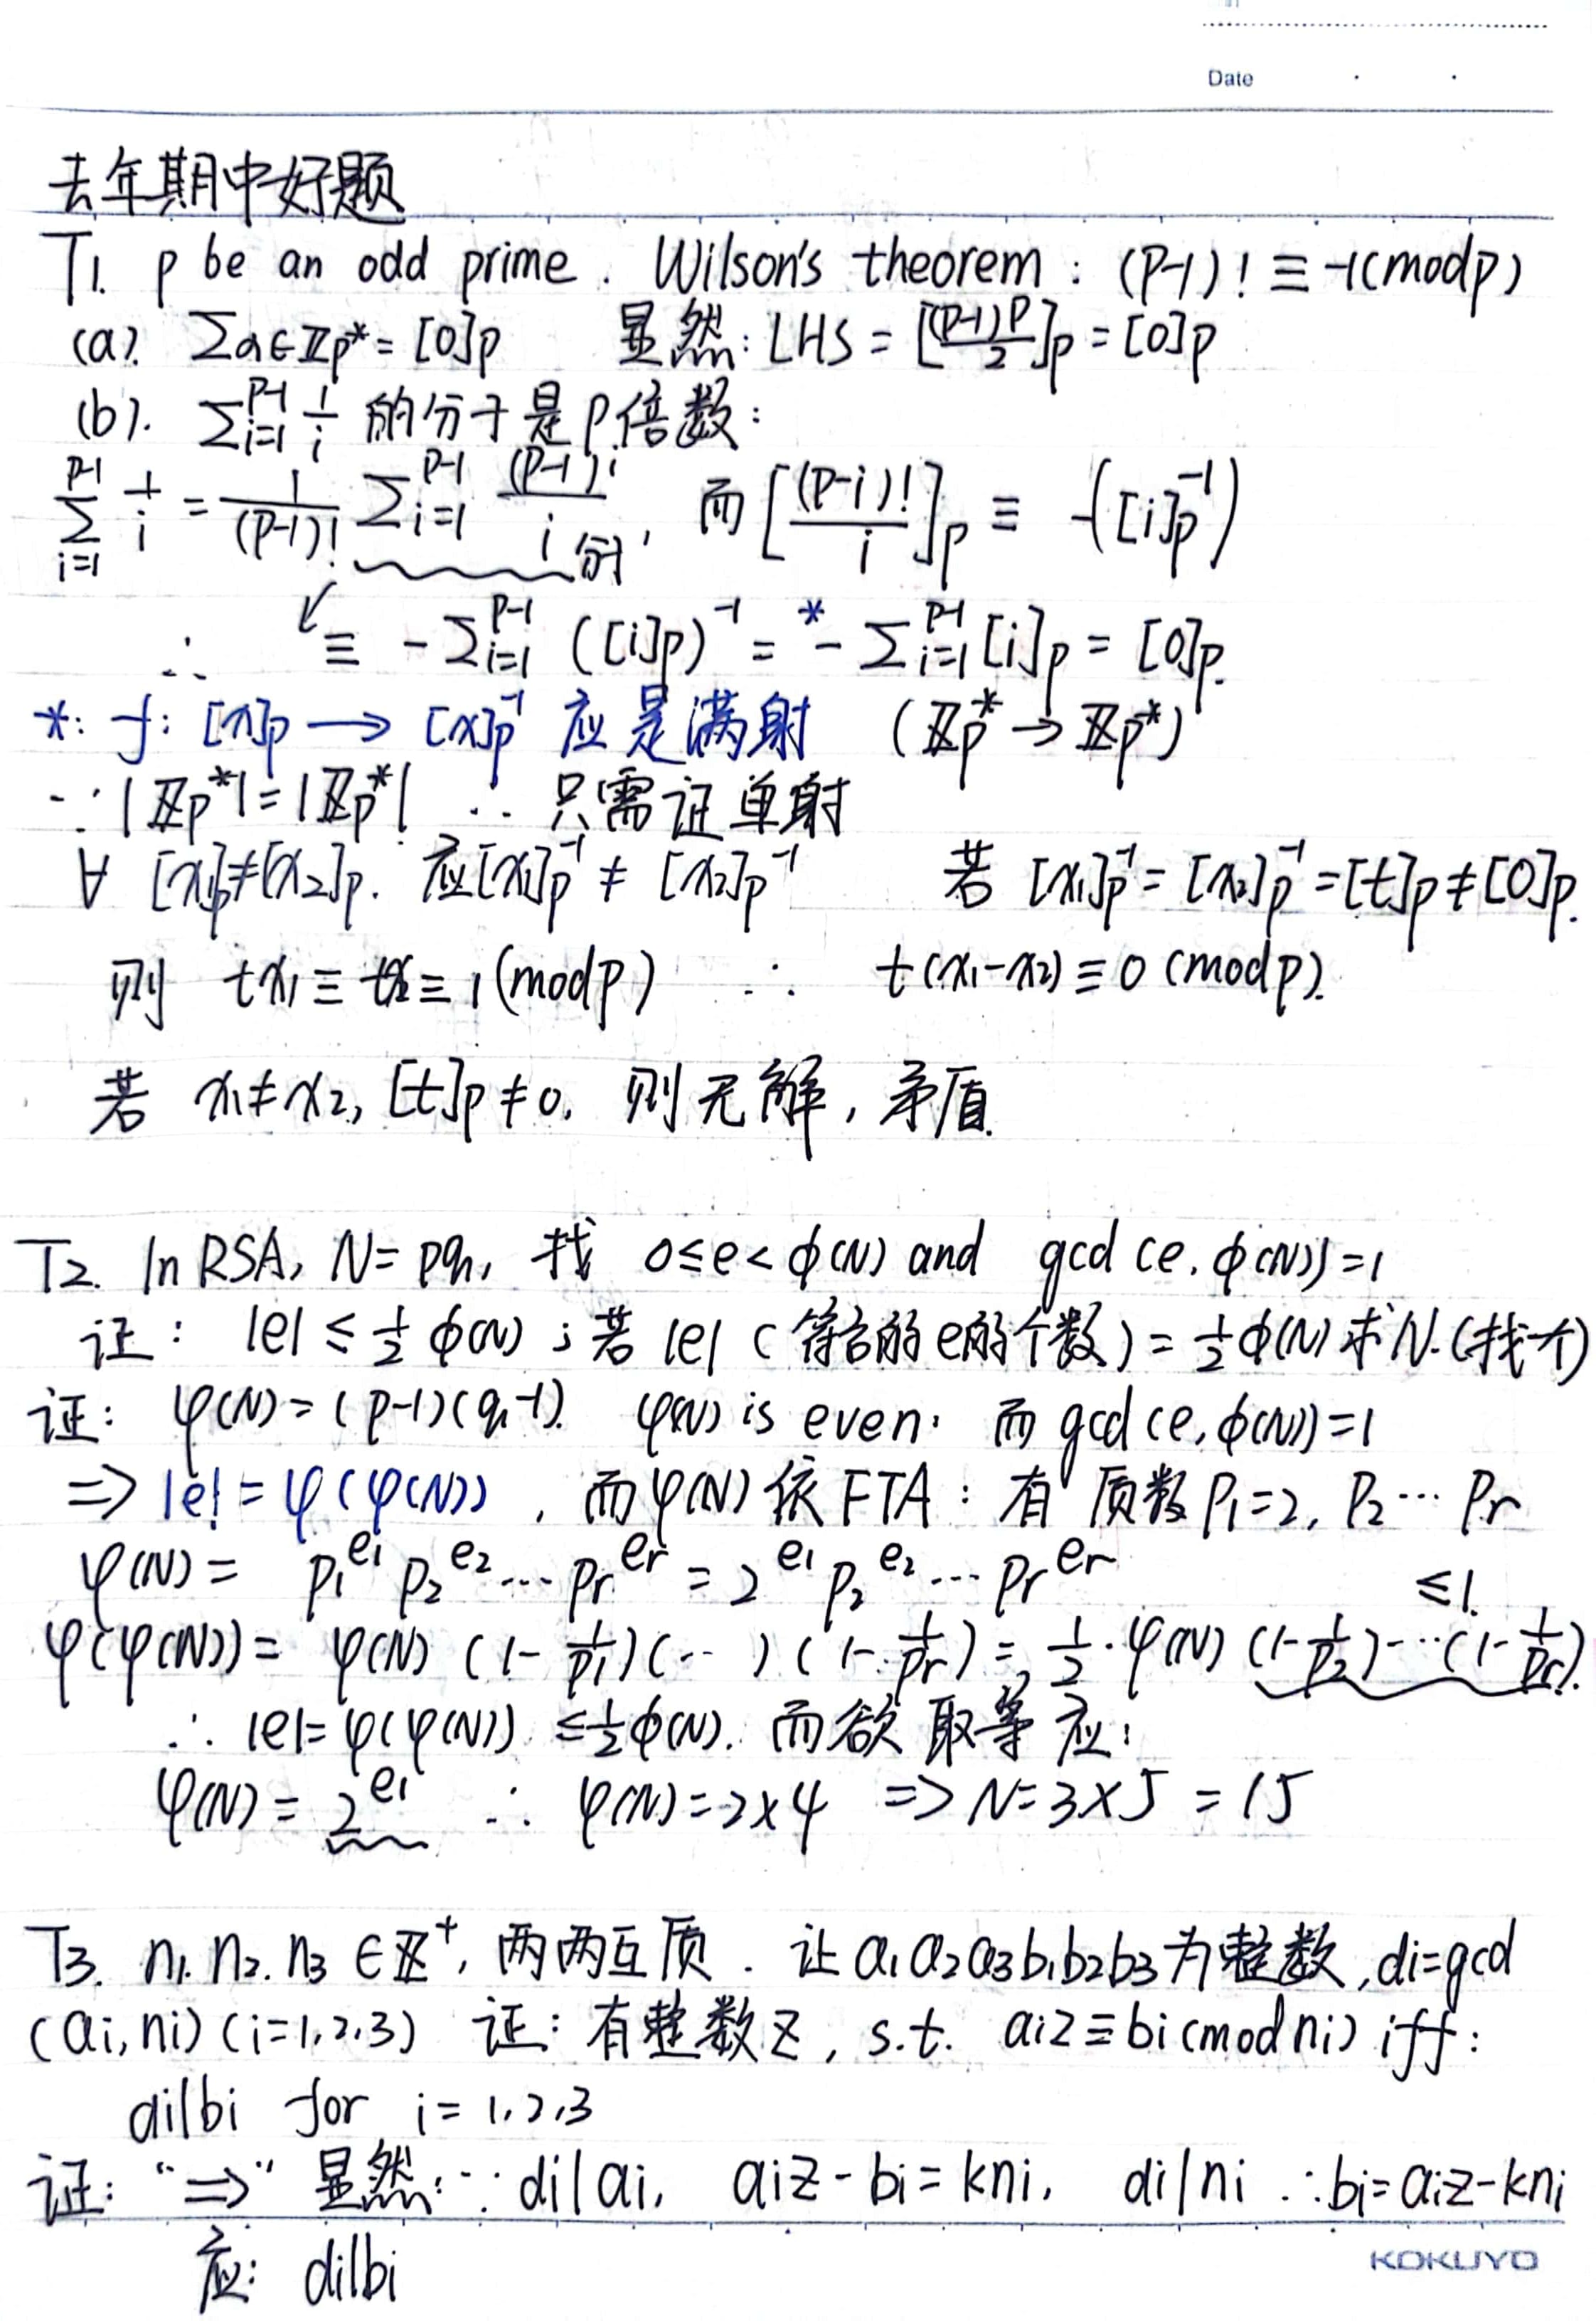 Date
去年期中好题
T1. p be an odd prime. Wilson's theorem: (P-1)! ≡ -1(modp)
(a). ∑a∈Zp* = [0]p 显然: LHS = [(P-1)P/2]p = [0]p
(b). ∑_{i=1}^{P-1} 1/i 的分子是p倍数:
∑_{i=1}^{P-1} 1/i = 1/(P-1)! ∑_{i=1}^{P-1} (P-1)!/i 而 [(P-i)!/i]p ≡ -([i]p^{-1})
∴ ≡ -∑_{i=1}^{P-1} ([i]p)^{-1} =* -∑_{i=1}^{P-1} [i]p = [0]p.
*: f: [x]p → [x]p^{-1} 应是满射 (Zp* → Zp*)
∵ |Zp*| = |Zp*| ∴ 只需证单射
∀ [x1]p≠[x2]p. 应[x1]p^{-1} ≠ [x2]p^{-1} 若 [x1]p^{-1} = [x2]p^{-1} = [t]p ≠ [0]p.
则 tx1 ≡ tx2 ≡ 1 (modp) ∴ t(x1-x2) ≡ 0 (modp).
若 x1≠x2, [t]p ≠ 0, 则无解, 矛盾.
T2. In RSA, N = pq, 找 0≤e<ϕ(N) and gcd(e,ϕ(N))=1
证: |e| ≤ 1/2 ϕ(N); 若 |e| (符合的e的个数) = 1/2 ϕ(N) 求N.(找一个)
证: φ(N) = (p-1)(q-1). φ(N) is even. 而 gcd(e,ϕ(N))=1
=> |e| = φ(φ(N)), 而φ(N)依FTA: 有质数P1=2, P2 ... Pr
φ(N) = P1^{e1} P2^{e2} ... Pr^{er} = 2^{e1} P2^{e2} ... Pr^{er} ≤1.
φ(φ(N)) = φ(N) (1-1/p1)(...)(1-1/pr) = 1/2 · φ(N) (1-1/p2)...(1-1/pr).
∴ |e| = φ(φ(N)) ≤ 1/2 ϕ(N). 而欲取等应:
φ(N) = 2^{e1} ∴ φ(N) = 2×4 => N = 3×5 = 15
T3. n1.n2.n3 ∈ Z+, 两两互质. 让a1a2a3b1b2b3为整数, di=gcd
(ai,ni)(i=1,2,3) 证: 有整数z, s.t. aiz≡bi(modni) iff:
di|bi for i = 1,2,3
证: "=>" 显然: ∵ di|ai, aiz-bi = kni, di|ni ∴ bi = aiz-kni
应: di|bi
KOKUYO